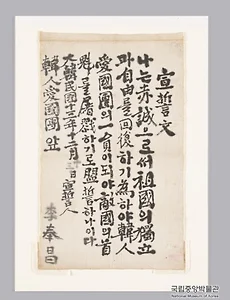 宣誓文
나는赤誠으로써祖國의獨立
과自由를回復하기爲하야韓人
愛國團의一員이되야敵國의首
魁를屠戮하기로盟誓하나이다
大韓民國十三年十二月十三日 宣誓人
李奉昌
韓人愛國團앞
국립중앙박물관
National Museum of Korea